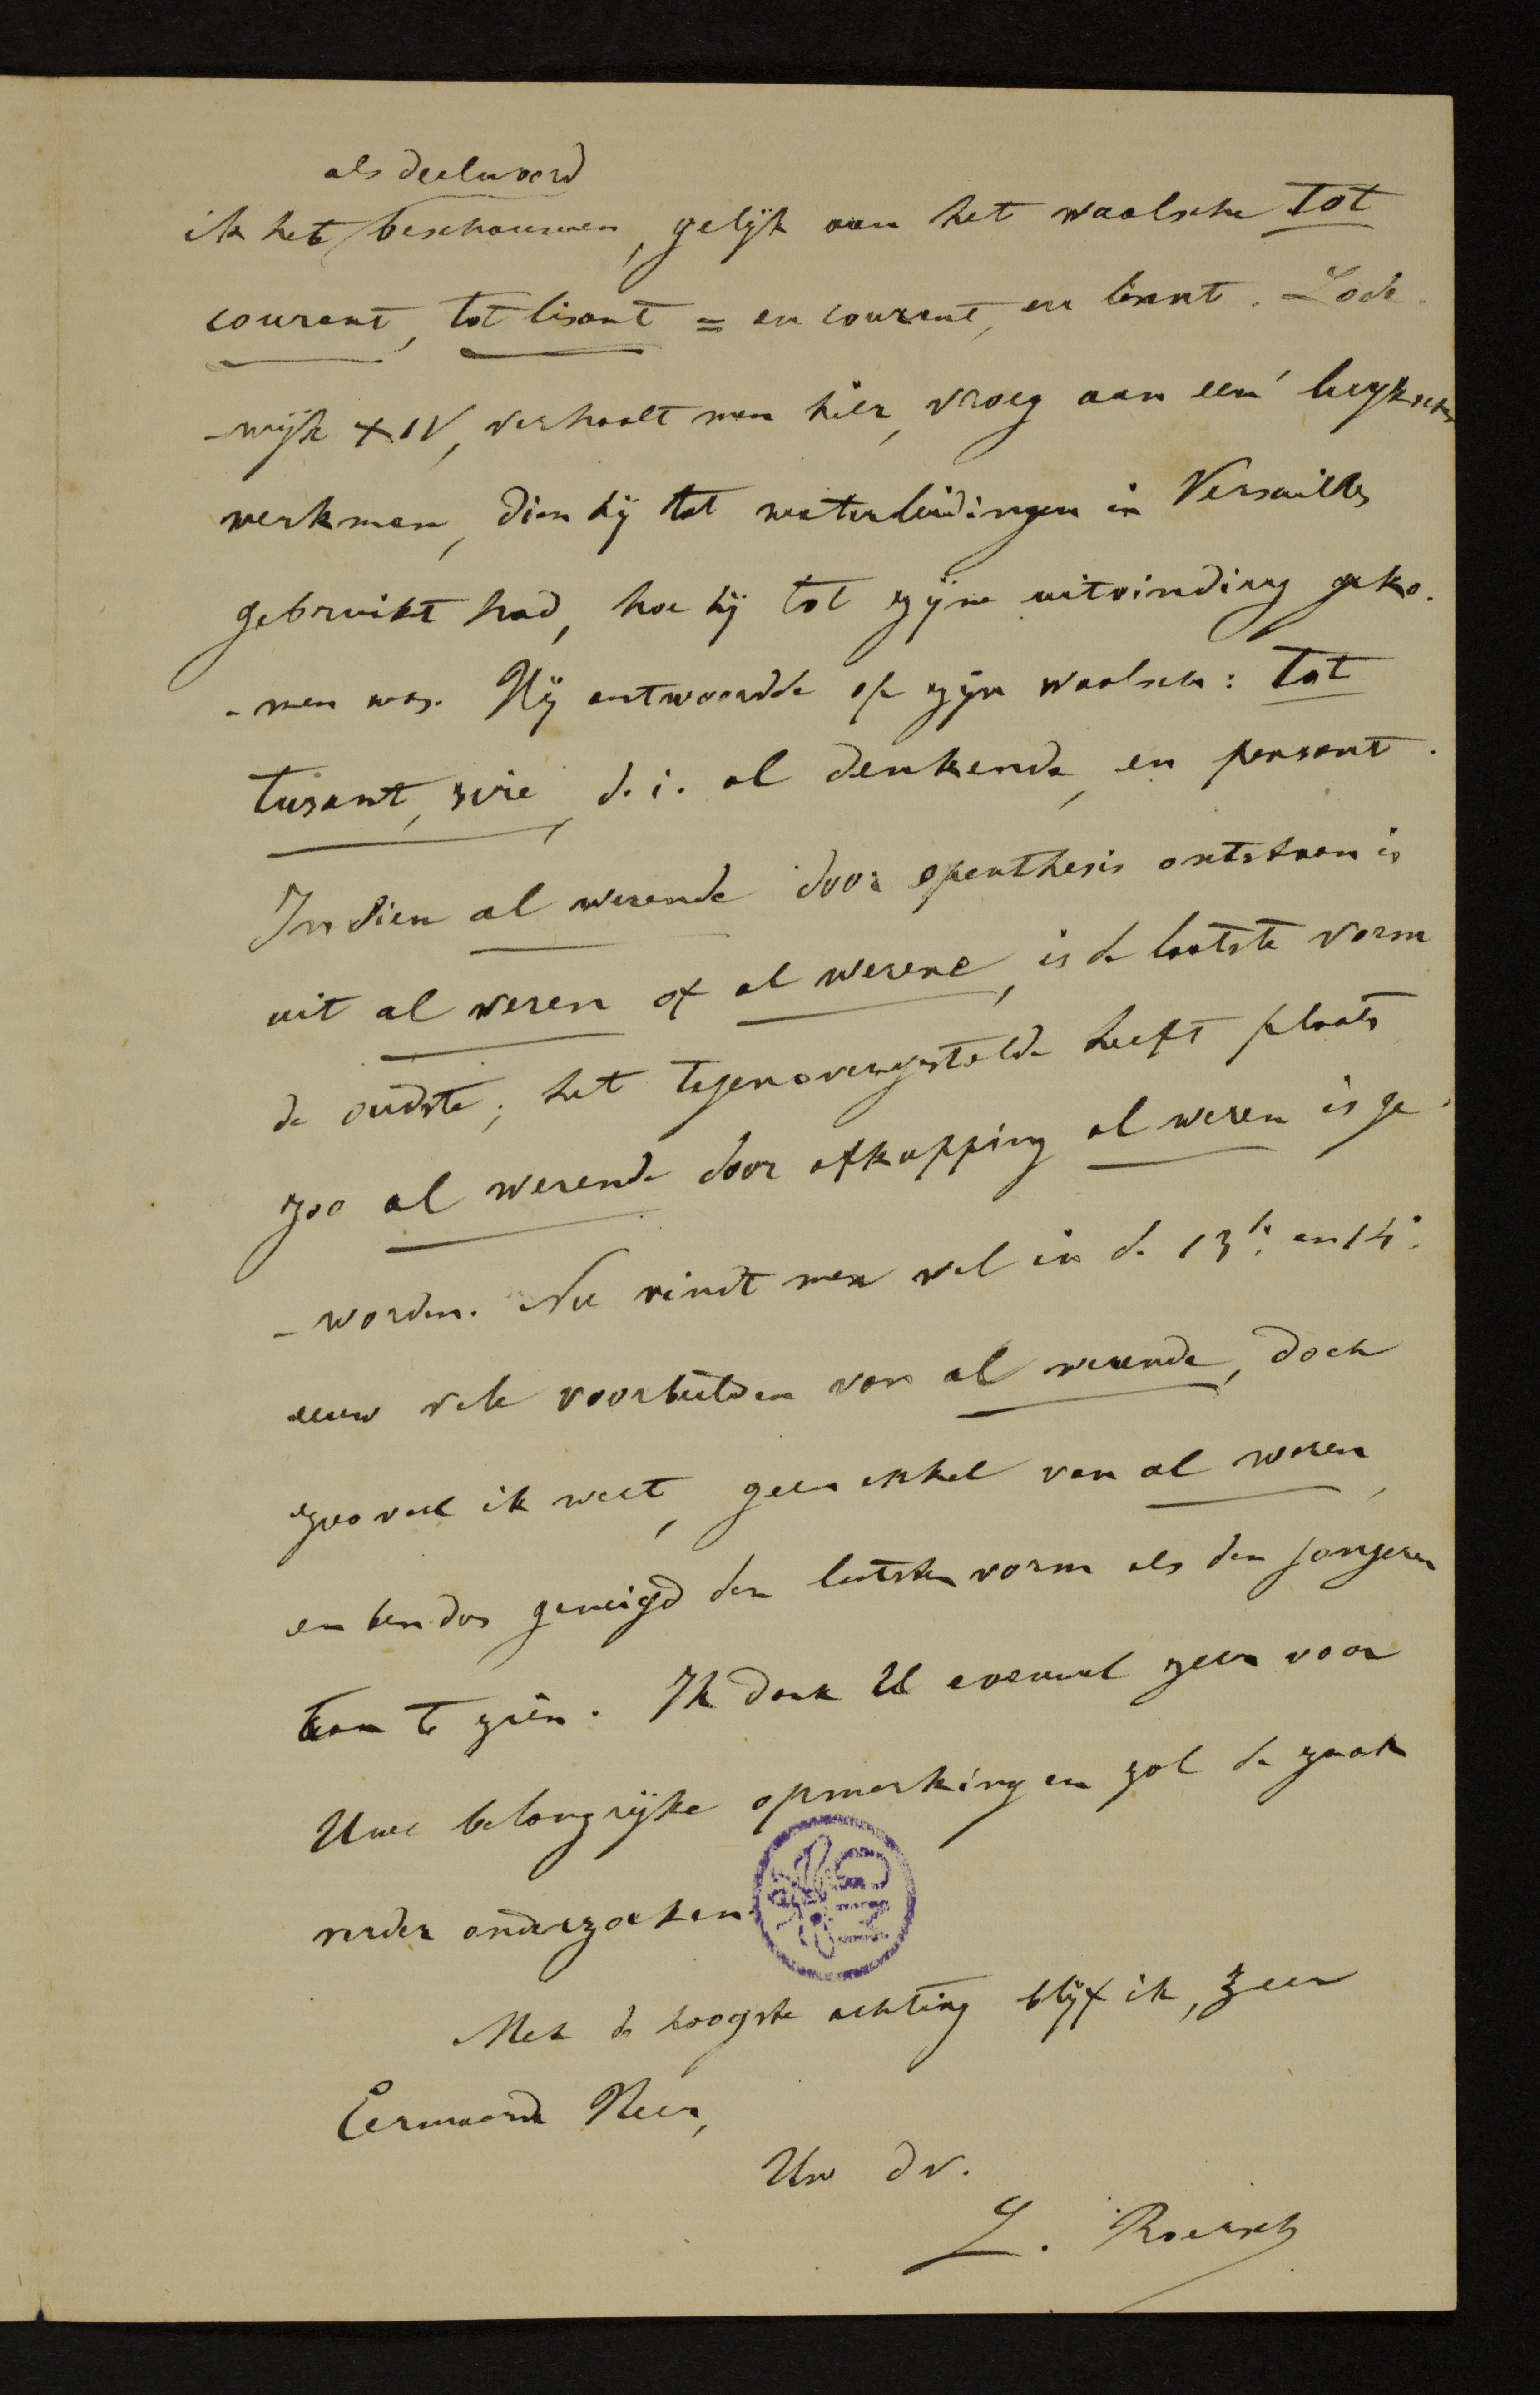 als deelwoord
ik het beschouwen, gelijk aan het waalsche tot
courant, tot lisant = en courant, en lisant. Lode-
-wijk XIV, verhaalt men hier, vroeg aan een' luykschen
werkman, dien hij tot waterleidingen in Versailles
gebruikt had, hoe hij tot zijne uitvinding geko-
-men was. Hij antwoordde op zijn waalsch: Tot
tusant, sire, d. i. al denkende, en pensant.
Indien al wesende door epenthesis ontstaan is
uit al wesen of al wesene, is de laatste vorm
de oudste; het tegenovergestelde heeft plaats
zoo al wesende door afkapping al wesen is ge-
-worden. Nu vindt men wel in de 13e en 14e
eeuw vele voorbeelden van al wesende, doch
zoo veel ik weet, geen enkel van al wesen,
en ben dus geneigd den laatsten vorm als den jongeren
aan te zien. Ik dank U evenwel zeer voor
Uwe belangrijke opmerking en zal de zaak
verder onderzoeken.
Met de hoogste achting blijf ik, zeer
Eerwaarde Heer,
Uw dv.
L. Roersch